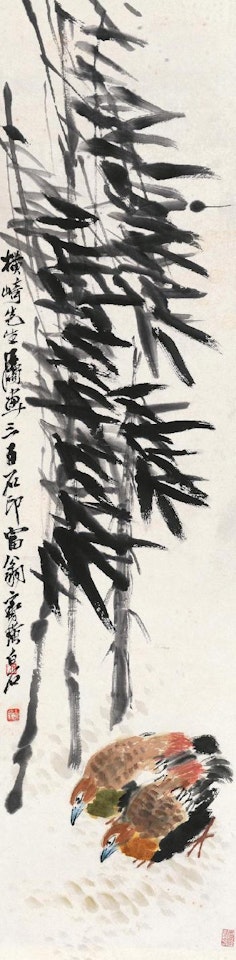 横崎先生清画三百石印富翁齐璜白石